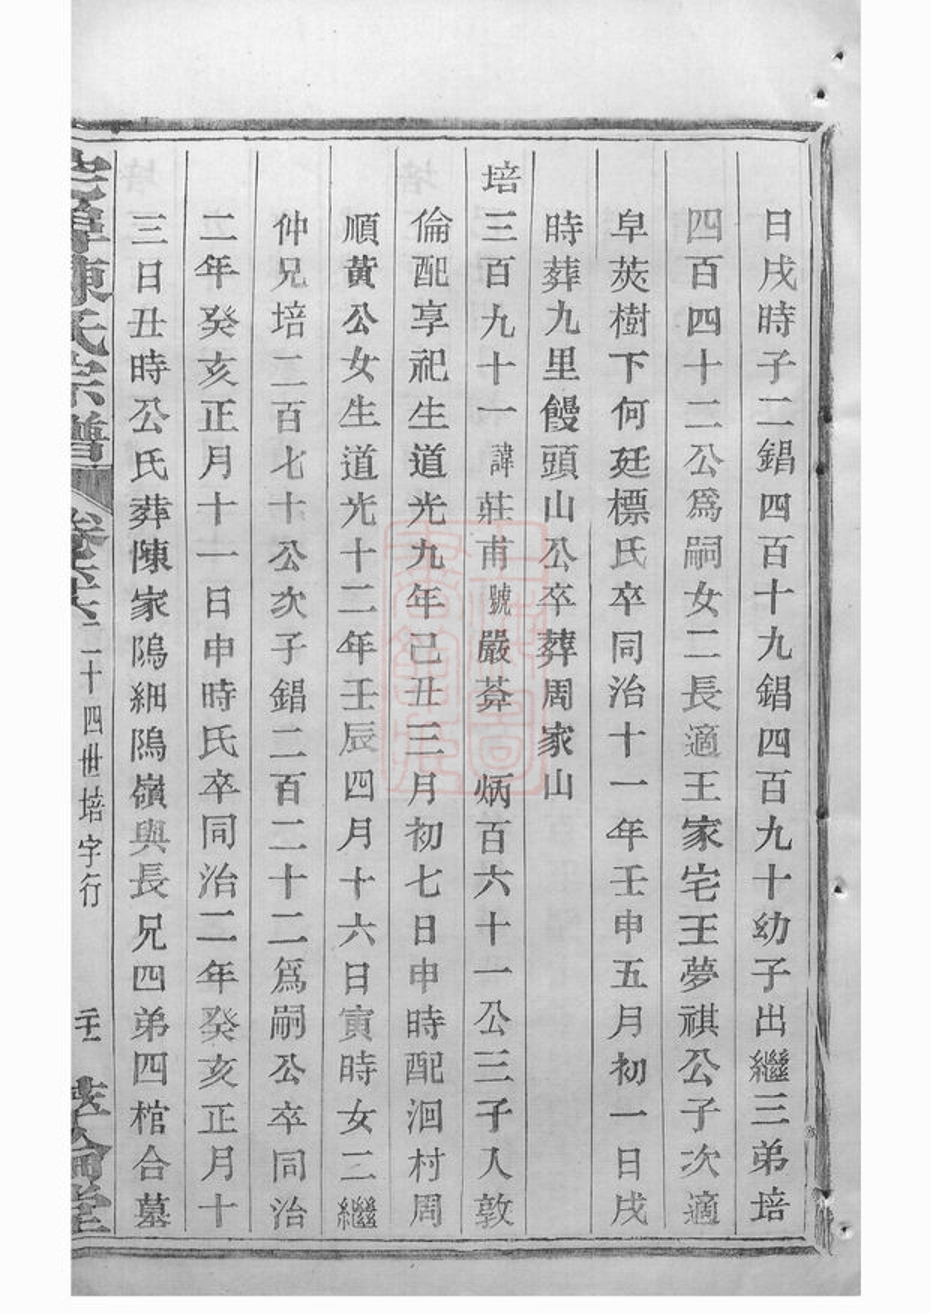 日戌時子二錩四百十九錩四百九十幼子出繼三弟培
四百四十二公爲嗣女二長適王家宅王夢祺公子次適
皁莢樹下何廷標氏卒同治十一年壬申五月初一日戌
時葬九里饅頭山公卒葬周家山
培三百九十一諱莊甫號嚴莽炳百六十一公三子入敦
倫配享祀生道光九年己丑三月初七日申時配洄村周
順黃公女生道光十二年壬辰四月十六日寅時女二繼
仲兄培二百七十公次子錩二百二十二爲嗣公卒同治
二年癸亥正月十一日申時氏卒同治二年癸亥正月十
三日丑時公氏葬陳家隖細隖嶺與長兄四弟四棺合墓
陳氏宗譜 卷 二十四世培字行 倫堂